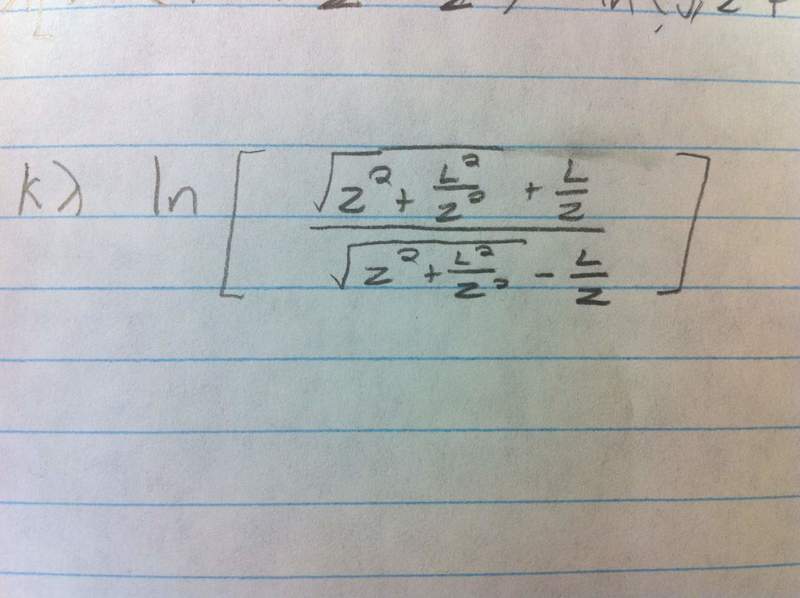 kλ ln [ (√(z² + L²/z²) + L/z) / (√(z² + L²/z²) - L/z) ]